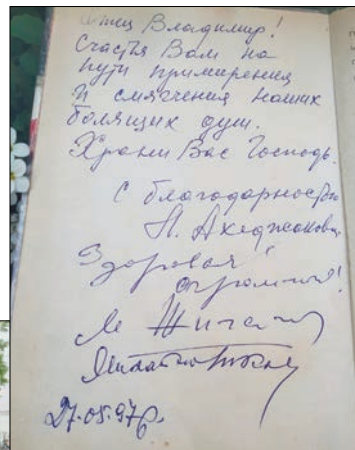 Отец Владимир!
Счастья Вам на
пути примирения
и смягчения наших
болящих душ.
Храни Вас Господь.
С благодарностью
Ахеджакова
Здоровья!
огромный!
М Жигалов
27.05.97г.